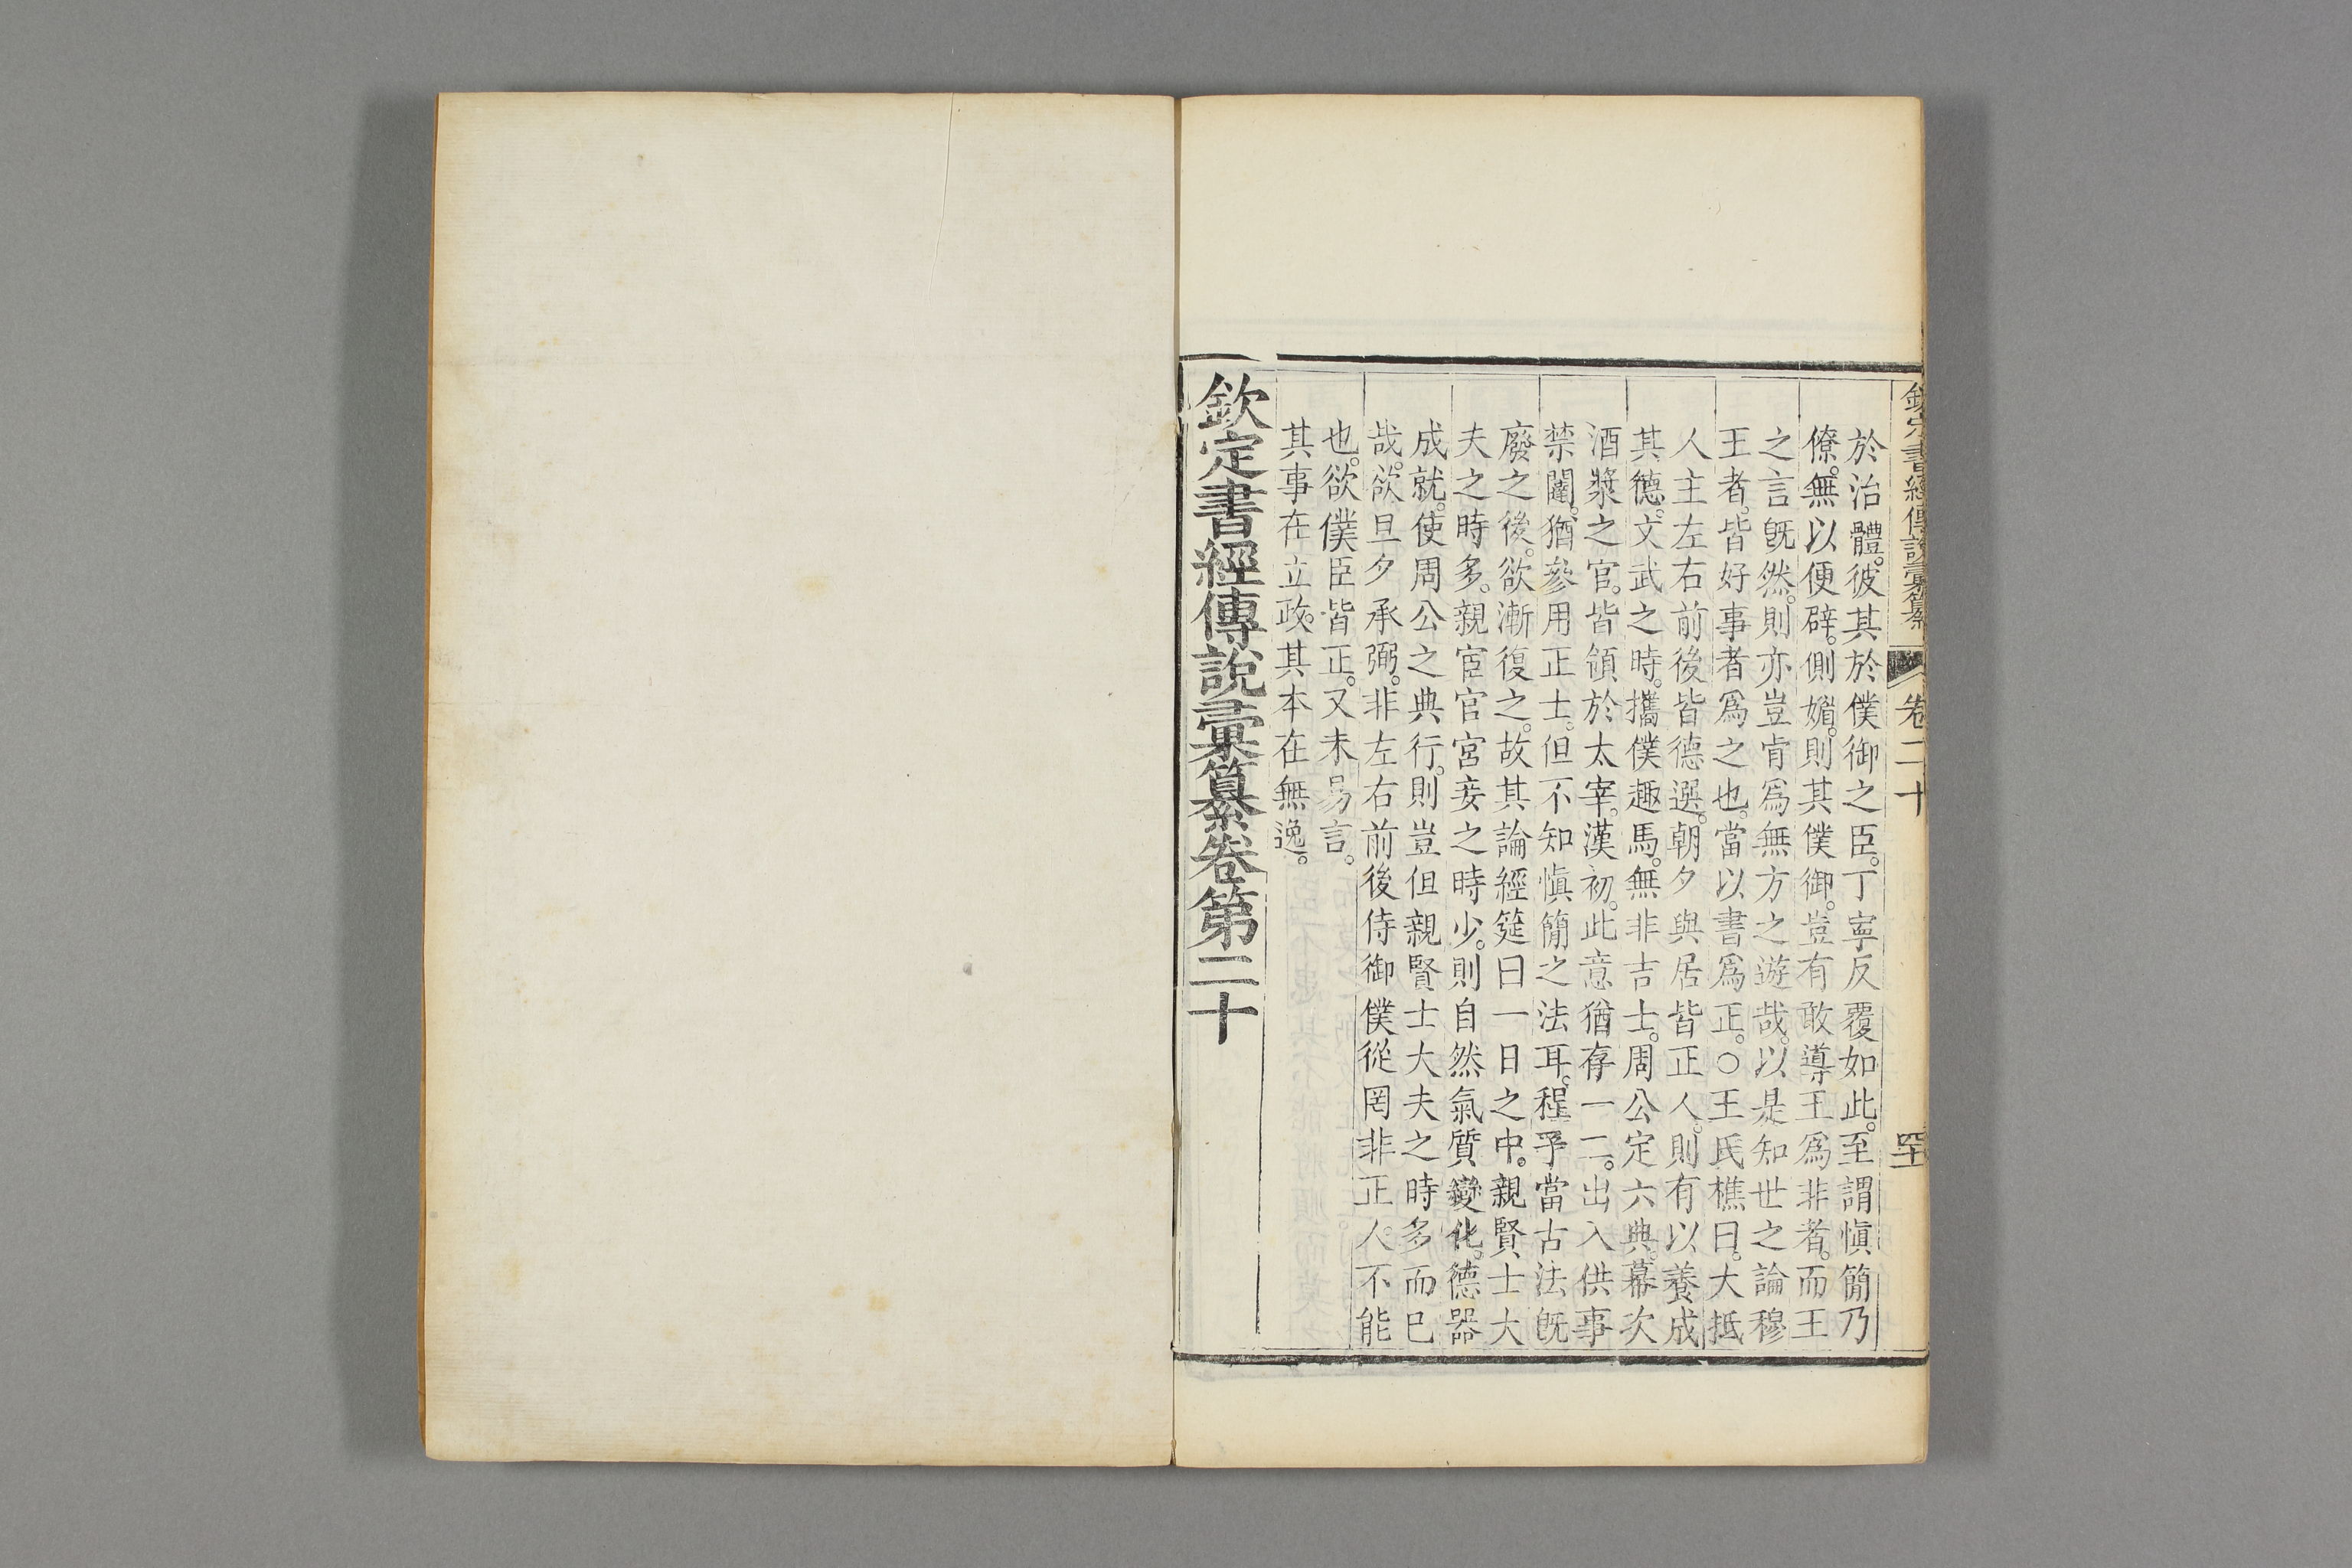 欽定書經傳說彙纂 卷二十
於治體。彼其於僕御之臣。丁寧反覆如此。至謂慎簡乃
僚。無以便辟。側媚。則其僕御。豈有敢導王爲非者。而王
之言既然。則亦豈肯爲無方之遊哉。以是知世之論穆
王者。皆好事者爲之也。當以書爲正。○王氏樵曰。大抵
人主左右前後皆德選。朝夕與居皆正人。則有以養成
其德。文武之時。攜僕趣馬。無非吉士。周公定六典。幕次
酒漿之官。皆領於太宰。漢初。此意猶存一二。出入供事
禁闥。猶參用正士。但不知愼簡之法耳。程子當古法既
廢之後。欲漸復之。故其論經筵曰一日之中。親賢士大
夫之時多。親宦官宮妾之時少。則自然氣質變化。德器
成就。使周公之典行。則豈但親賢士大夫之時多而已
哉。欲旦夕承弼。非左右前後侍御僕從罔非正人不能
也。欲僕臣皆正。又未易言。
其事在立政。其本在無逸。
欽定書經傳說彙纂卷第二十